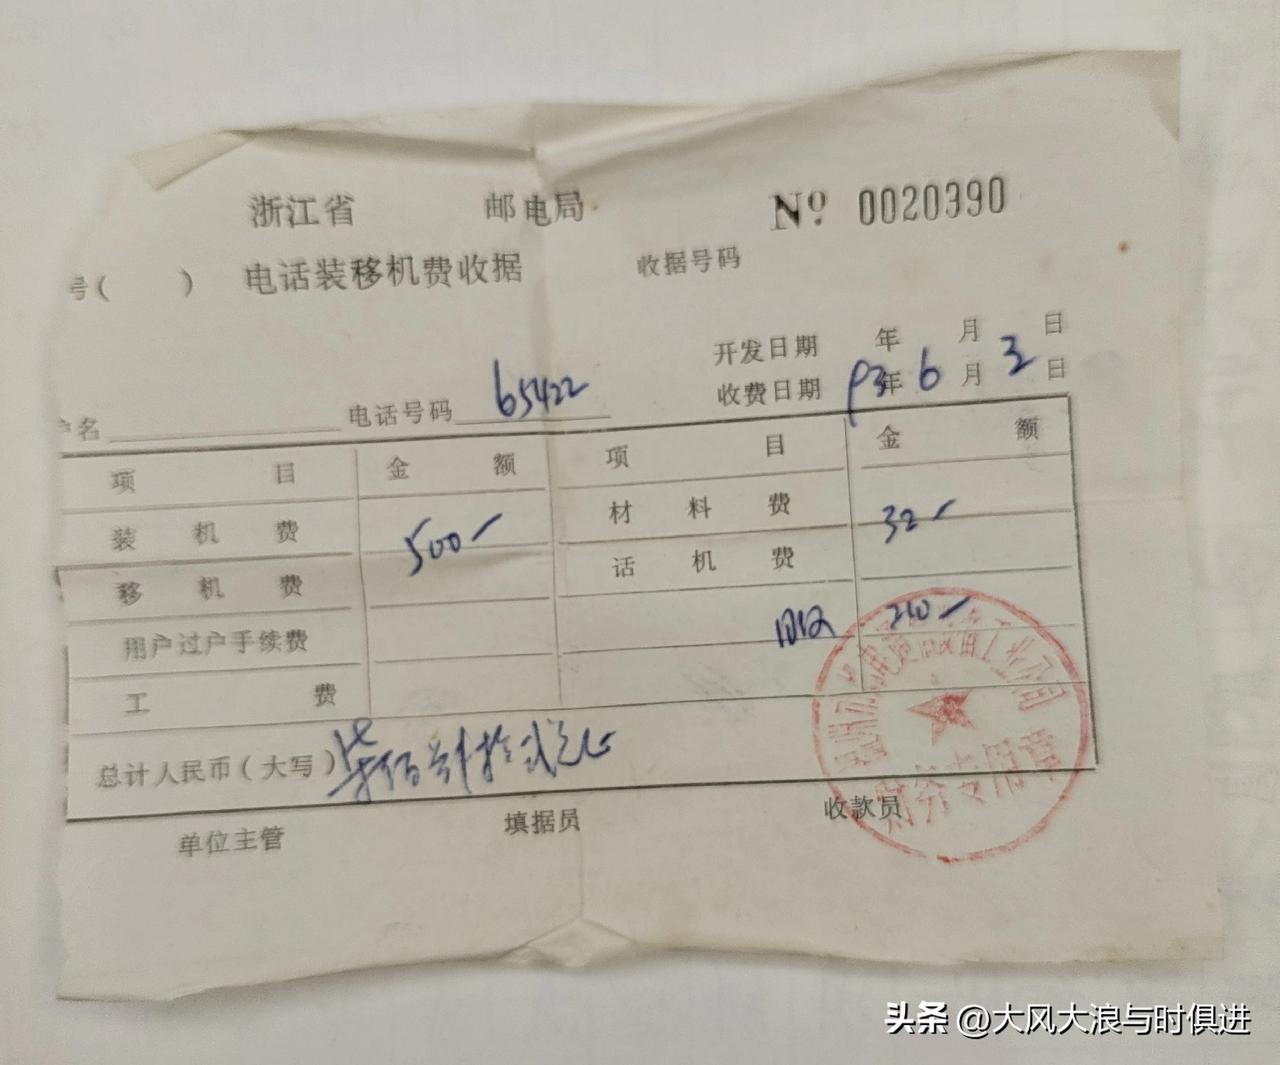 浙江省 邮电局 № 0020390
号( ) 电话装移机费收据 收据号码
开发日期 年 月 日
收费日期 93年 6 月 3 日
户名 电话号码 65422
项目 金额 项目 金额
装机费 500- 材料费 32-
移机费 话机费
用户过户手续费 210-
工费
总计人民币(大写) 柒佰肆拾贰元正
单位主管 填据员 收款员
财务专用章
头条 @大风大浪与时俱进